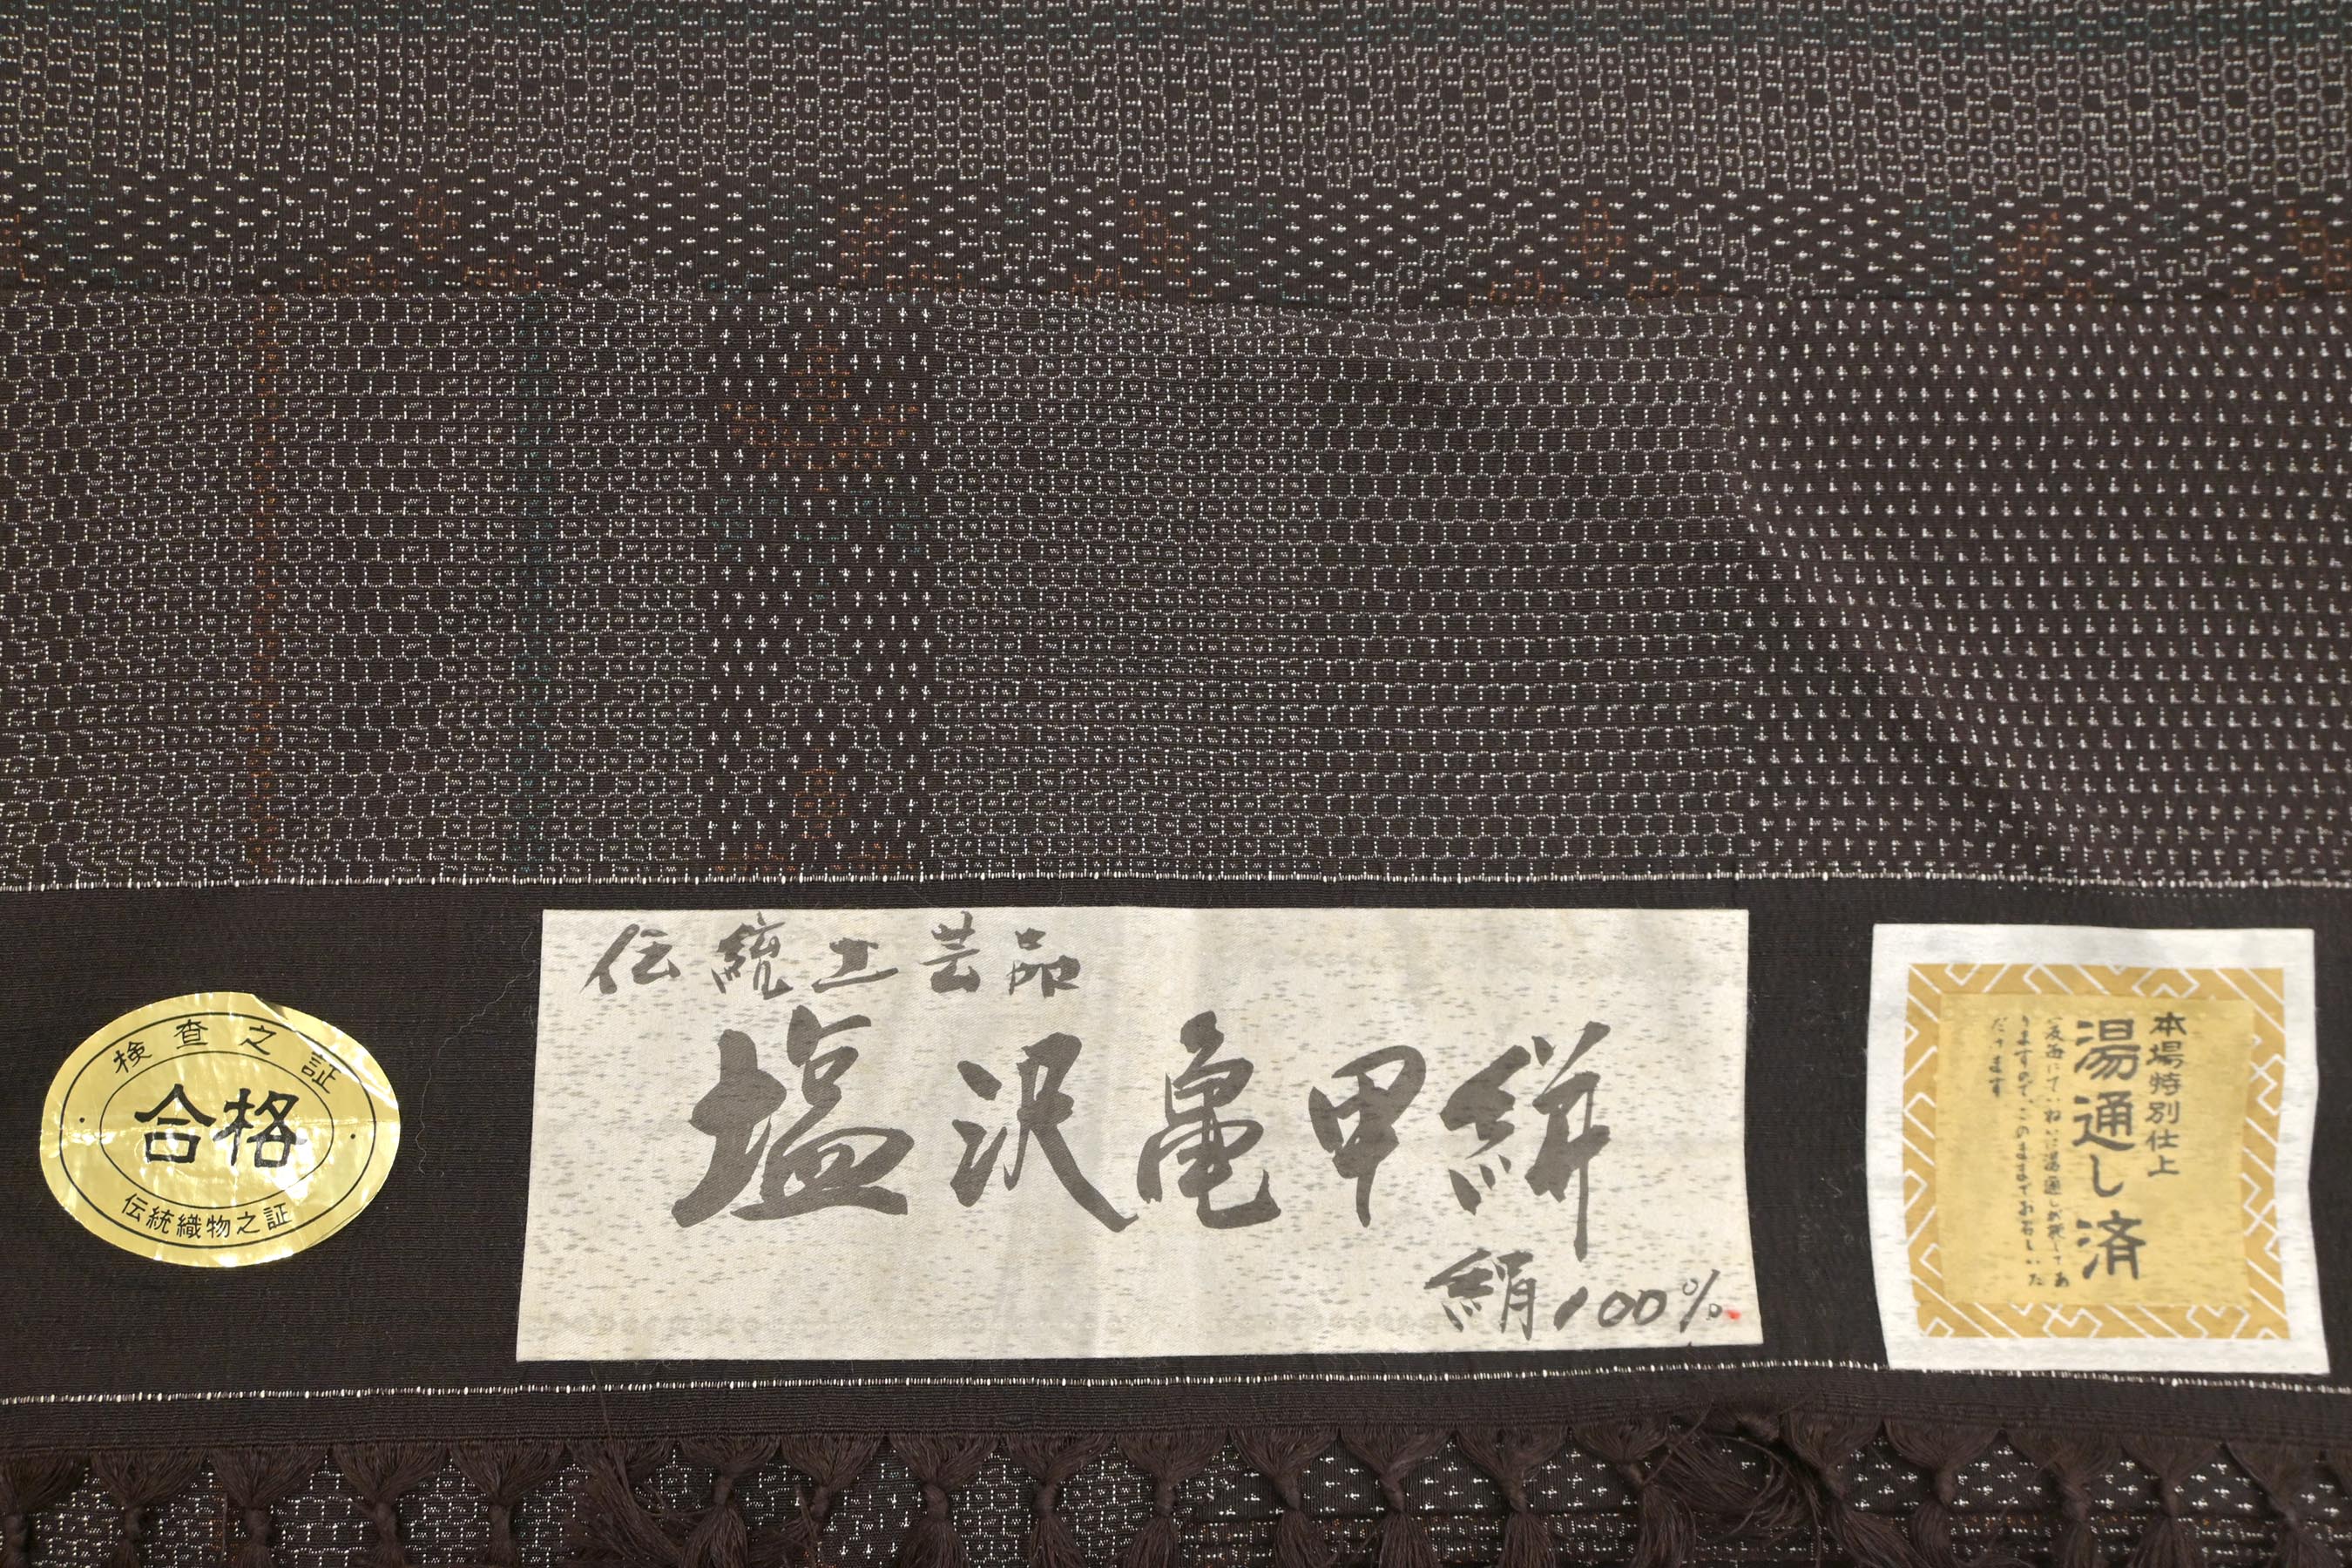 検査之証
合格
伝統織物之証
伝統工芸品
塩沢亀甲絣
絹100%
本場特別仕上
湯通し済
一反毎にていねいに湯通しが施してあ
りますので、このままでお召しいた
だけます